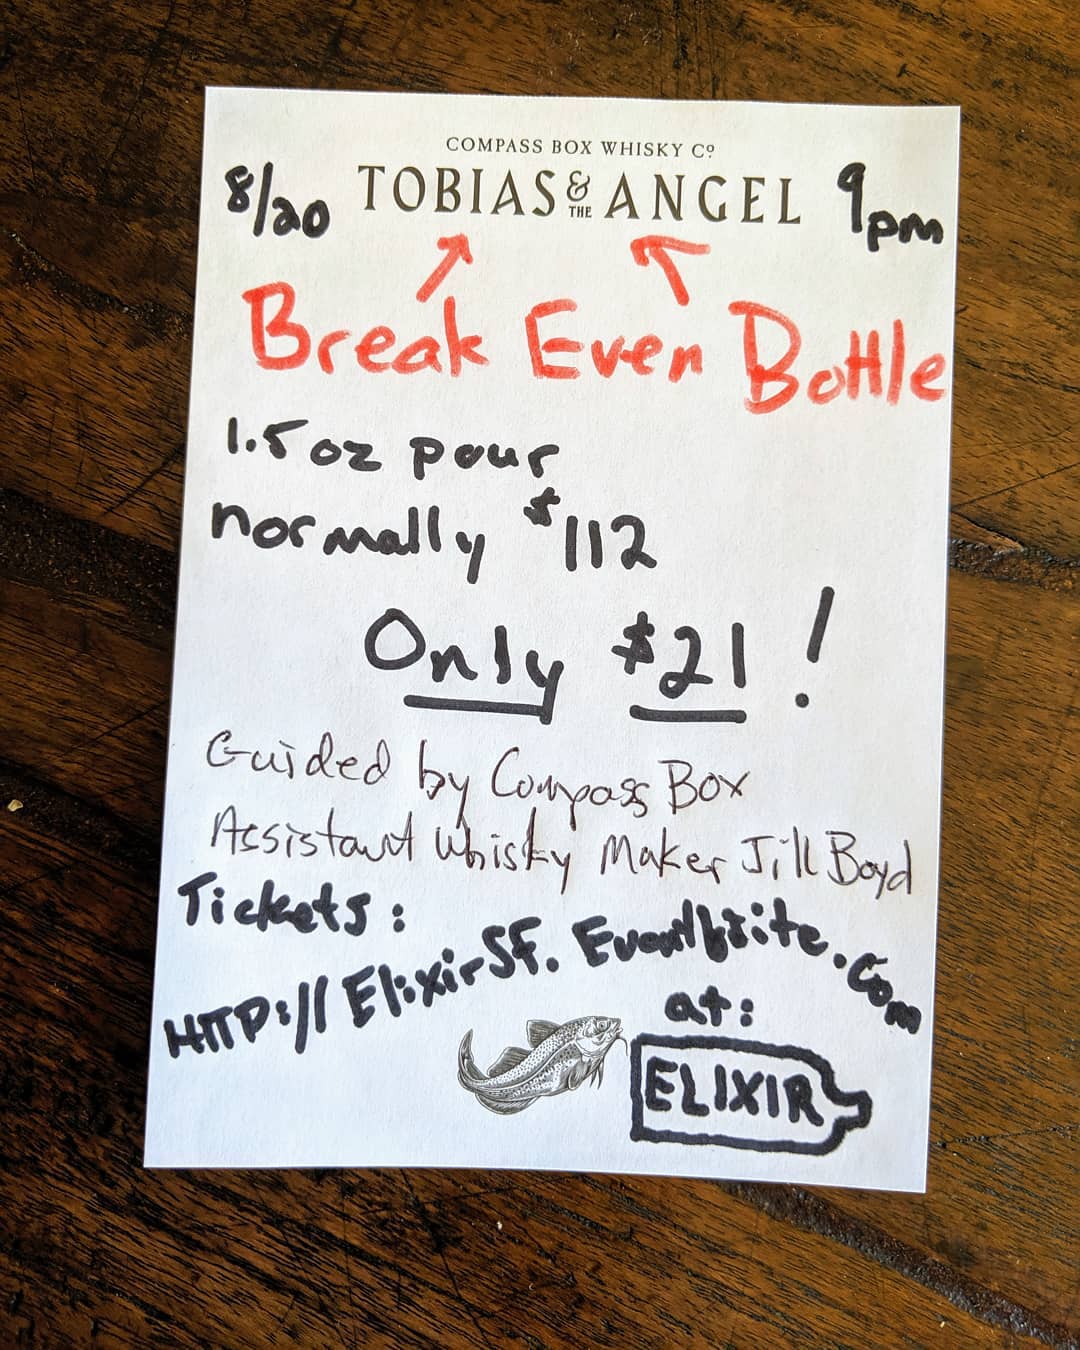 COMPASS BOX WHISKY Cº
8/20 TOBIAS & THE ANGEL 9pm
Break Even Bottle
1.5 oz pour
normally $112
Only $21!
Guided by Compass Box
Assistant Whisky Maker Jill Boyd
Tickets:
HTTP://ElixirSF.Eventbrite.com
at:
ELIXIR